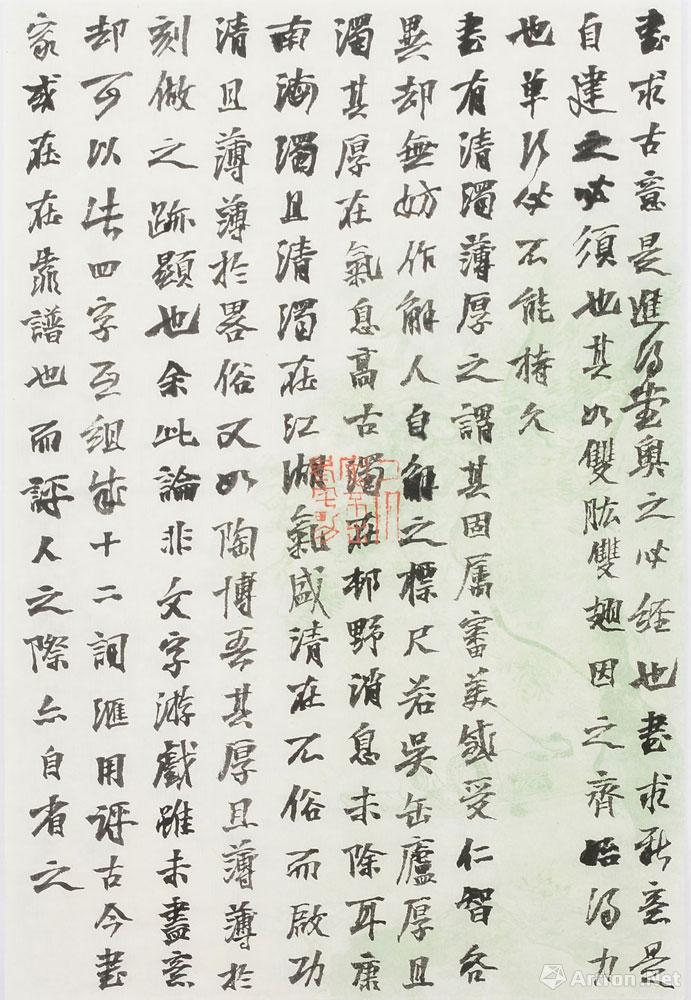 書求古意是進得堂奧之必经也書求新意是
自建之必須也其如雙肱雙翅因之齊始得力
也单行必不能持久
書有清濁薄厚之謂其因属審美感受仁智各
異却無妨作解人自解之標尺若吴缶廬厚且
濁其厚在氣息高古濁在邨野消息未除耳康
南海濁且清濁在江湖氣盛清在不俗而啟功
清且薄薄於畧俗又如陶博吾其厚且薄薄於
刻做之跡顯也余此論非文字游戲雖未盡意
却可以此四字互組成十二詞匯用評古今書
家或在在靠譜也而評人之際亦自省之
Artron.Net